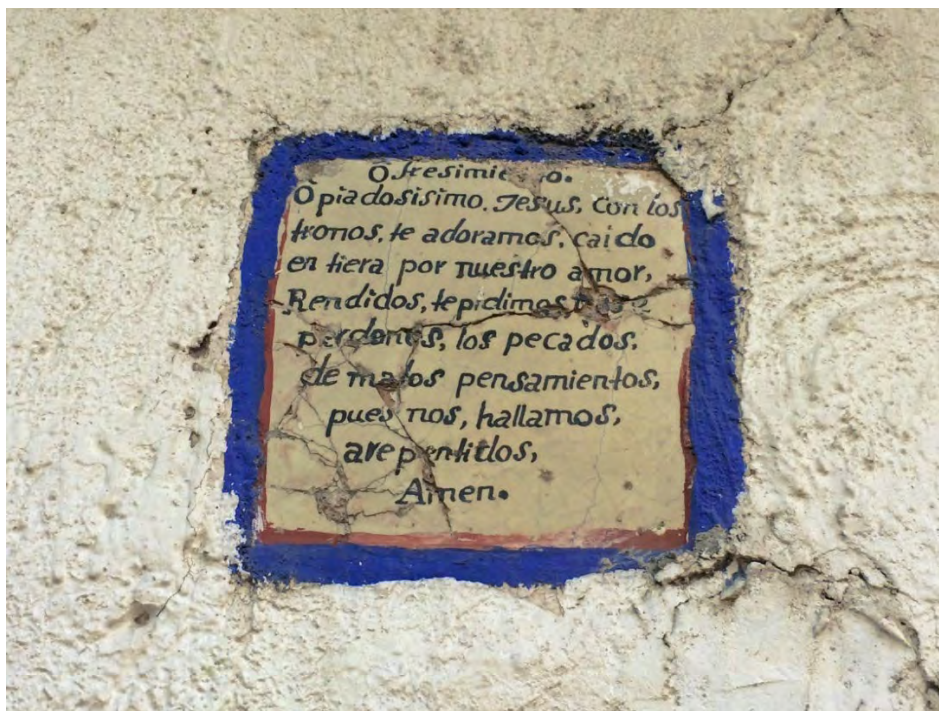 Ofresimiento.
O piadosisimo. Jesus, con los
tronos, te adoramos, caido
en tiera por nuestro amor,
Rendidos, te pidimos
perdones, los pecados,
de malos pensamientos,
pues nos, hallamos,
arepentidos,
Amen.